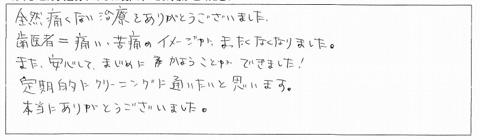 全然痛くない治療をありがとうございました。
歯医者＝痛い、苦痛のイメージが、まったくなくなりました。
また、安心して、まじめに かようことが できました!
定期的にクリーニングに通いたいと思います。
本当にありがとうございました。